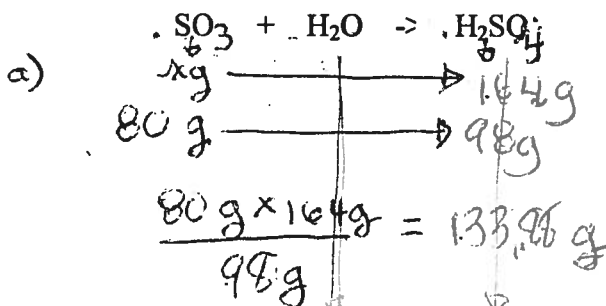 SO3 + H2O -> H2SO4
a) xg 164 g
80 g 98g
80 g x 164g = 133,88 g
98 g